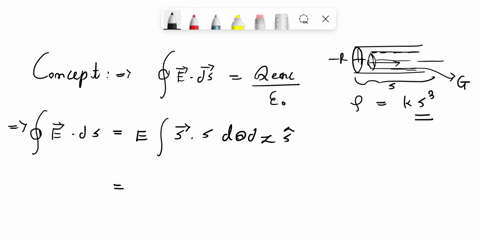 Concept :=> ∮ E⃗ · ds⃗ = Qenc / ε₀
R
s
G
ρ = k s³
=> ∮ E⃗ · ds = E ∫ s⃗ · s dθ dz ŝ
=